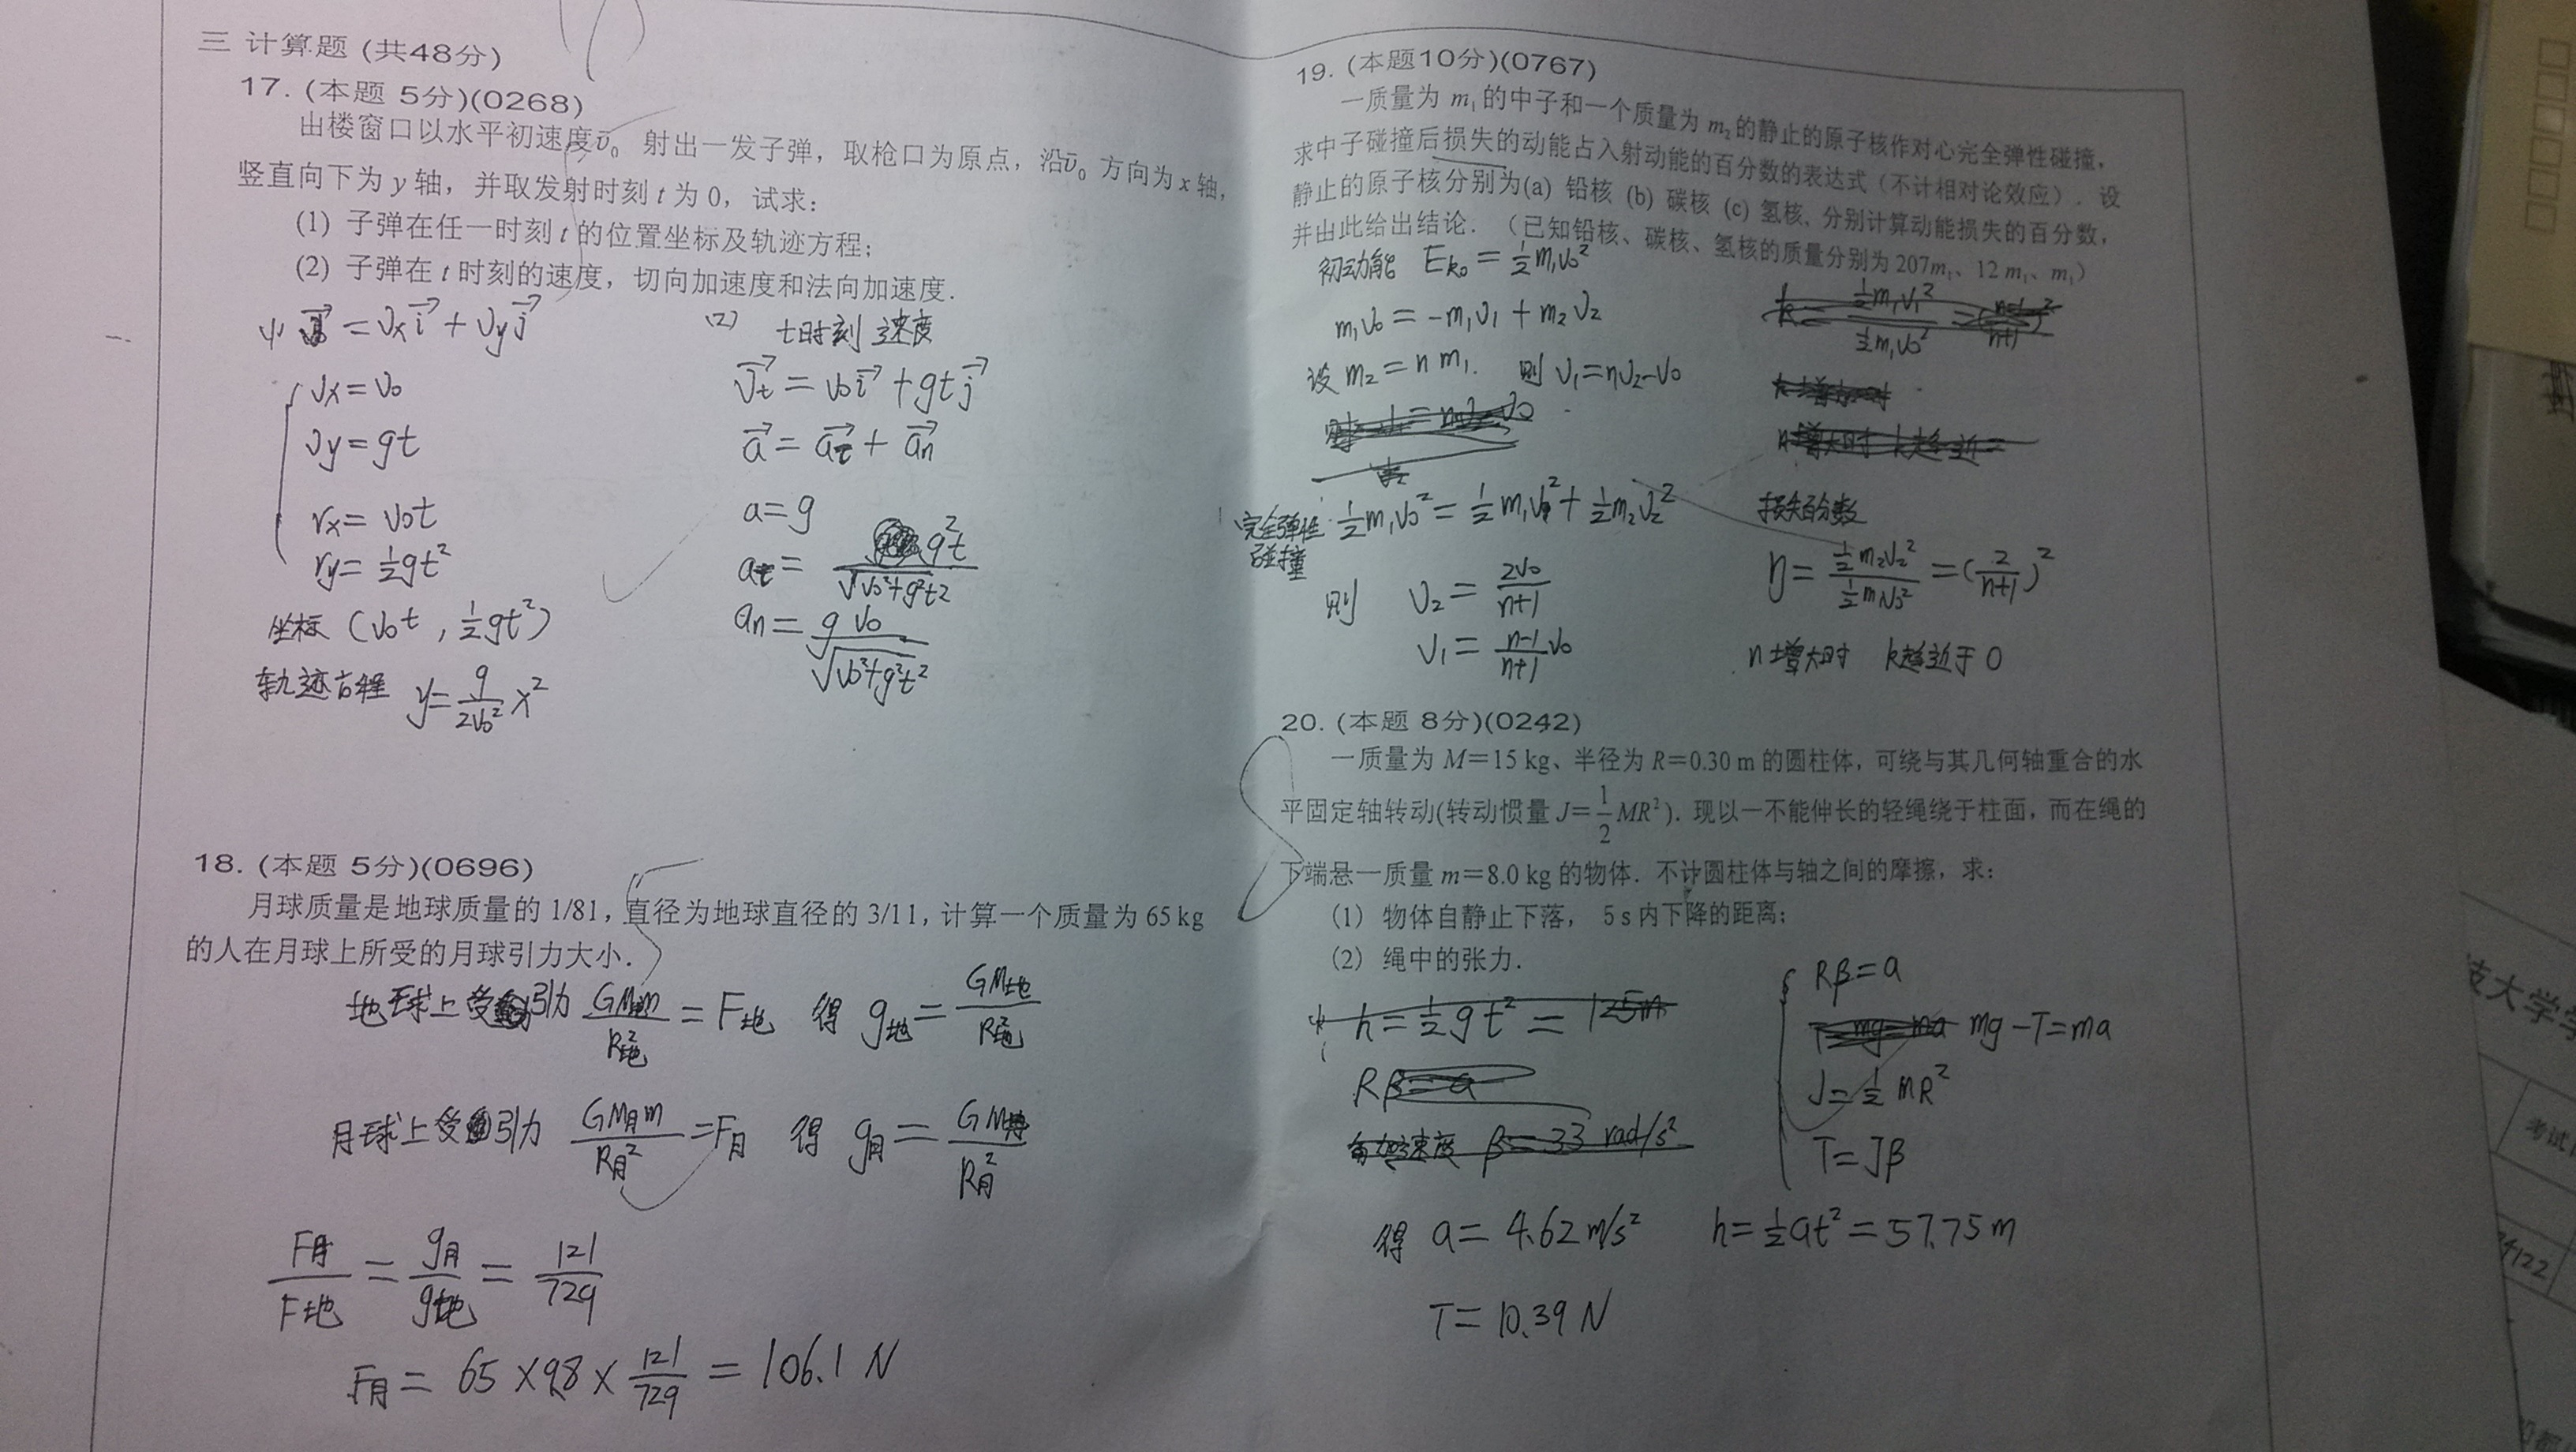 三 计算题 (共48分)
17. (本题 5分)(0268)
由楼窗口以水平初速度v⃗₀ 射出一发子弹，取枪口为原点，沿v⃗₀ 方向为 x 轴，
竖直向下为 y 轴，并取发射时刻 t 为 0，试求：
(1) 子弹在任一时刻 t 的位置坐标及轨迹方程；
(2) 子弹在 t 时刻的速度，切向加速度和法向加速度．
(1) v⃗ = vx i⃗ + vy j⃗
vx = v₀
vy = gt
rx = v₀t
ry = ½gt²
坐标 (v₀t , ½gt²)
轨迹方程 y = g/(2v₀²) x²
(2) t时刻 速度
v⃗t = v₀ i⃗ + gt j⃗
a⃗ = a⃗t + a⃗n
a = g
at = g²t/√(v₀²+g²t²)
an = g v₀/√(v₀²+g²t²)
18. (本题 5分)(0696)
月球质量是地球质量的 1/81，直径为地球直径的 3/11，计算一个质量为 65 kg
的人在月球上所受的月球引力大小．
地球上受引力 GM地m/R地² = F地 得 g地 = GM地/R地²
月球上受引力 GM月m/R月² = F月 得 g月 = GM月/R月²
F月/F地 = g月/g地 = 121/729
F月 = 65 × 9.8 × 121/729 = 106.1 N
19. (本题10分)(0767)
一质量为 m₁ 的中子和一个质量为 m₂ 的静止的原子核作对心完全弹性碰撞，
求中子碰撞后损失的动能占入射动能的百分数的表达式（不计相对论效应）．设
静止的原子核分别为(a) 铅核 (b) 碳核 (c) 氢核、分别计算动能损失的百分数，
并由此给出结论．（已知铅核、碳核、氢核的质量分别为 207m₁、12 m₁、m₁）
初动能 Ek₀ = ½m₁v₀²
m₁v₀ = -m₁v₁ + m₂v₂
设 m₂ = n m₁. 则 v₁ = nv₂-v₀
完全弹性碰撞 ½m₁v₀² = ½m₁v₁² + ½m₂v₂²
则 v₂ = 2v₀/(n+1)
v₁ = (n-1)/(n+1) v₀
k = ½m₁v₁²/½m₁v₀² = ((n-1)/(n+1))²
k增加时
n增大时 k趋近=
损失百分数
η = ½m₂v₂²/½m₁v₀² = (2/(n+1))²
n增大时 k趋近于 0
20. (本题 8分)(0242)
一质量为 M＝15 kg、半径为 R＝0.30 m 的圆柱体，可绕与其几何轴重合的水
平固定轴转动(转动惯量 J＝½MR²)．现以一不能伸长的轻绳绕于柱面，而在绳的
下端悬一质量 m＝8.0 kg 的物体．不计圆柱体与轴之间的摩擦，求：
(1) 物体自静止下落， 5 s 内下降的距离；
(2) 绳中的张力．
(1) h = ½gt² = 125m
Rβ = a
角加速度 β = 33 rad/s²
Rβ = a
T-mg=ma mg - T = ma
J = ½ mR²
T = Jβ
得 a = 4.62 m/s² h = ½at² = 57.75 m
T = 10.39 N
技大学
考试
24122